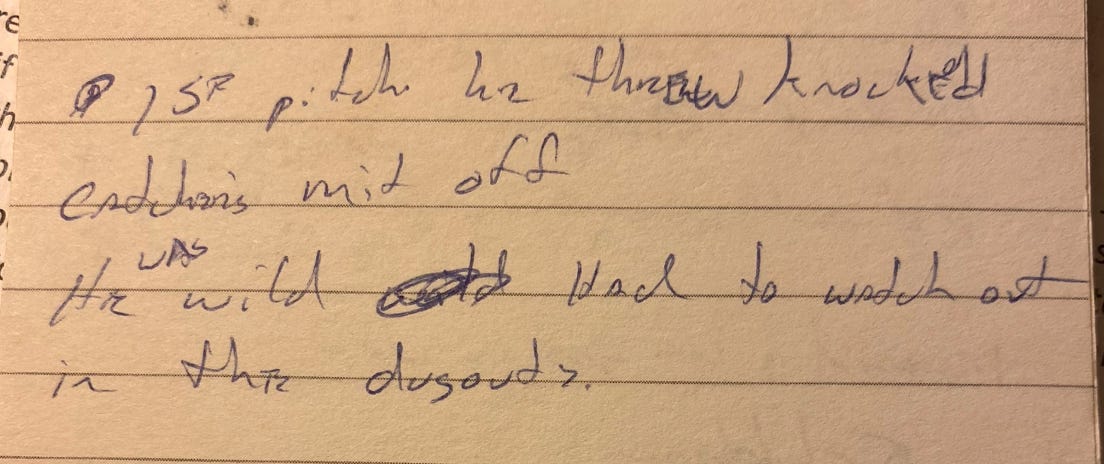 1st pitch he threw knocked
catchers mit off
He was wild Had to watch out
in the dugouts.